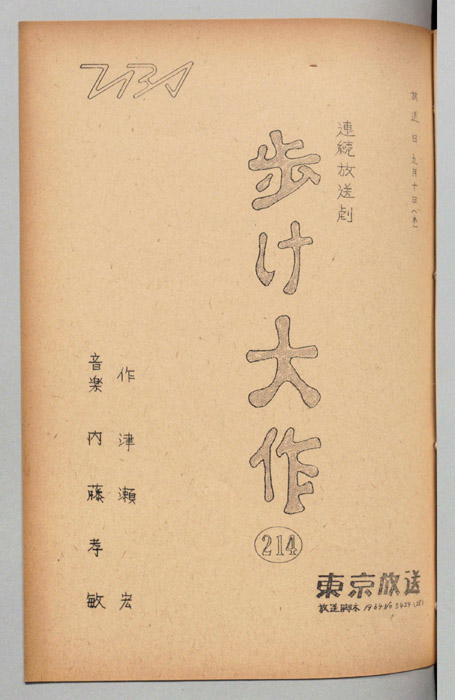 放送日 九月十日(木)
連続放送劇
歩け大作
214
作 津瀬 宏
音楽 内藤孝敏
東京放送
放送脚本